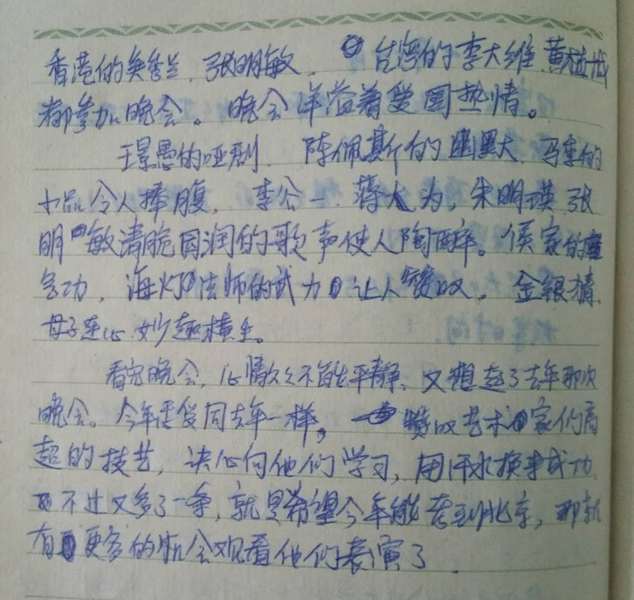 香港的奚秀兰、张明敏、台湾的李大维、黄植诚
都参加晚会。晚会洋溢着爱国热情。
王景愚的哑剧、陈佩斯的幽默、马季的
小品令人捧腹，李公一、蒋大为，朱明瑛、张
明敏清脆圆润的歌声使人陶醉。侯家的
多功，海灯法师的武力让人赞叹，金银猜
母子连心妙趣横生。
看完晚会，心情久久不能平静、又想起了去年那次
晚会。今年感受同去年一样，赞叹艺术家们高
超的技艺，决心向他们学习，用汗水换来成功
不过又多了一条，就是希望今年能考到北京，那就
有更多的机会观看他们表演了